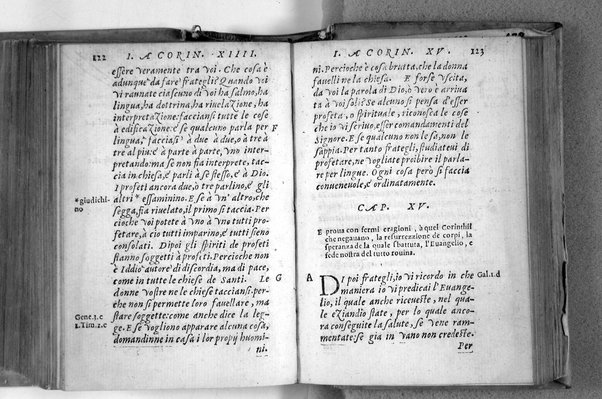 122 I. A CORIN. XIIII.
essere veramente tra voi. Che cosa è
adunque da fare frategli? Quando voi
vi raunate ciascuno di voi ha salmo, ha
lingua, ha dottrina, ha rivelazione, ha
interpretazione: facciansi tutte le cose
à edificazione. e se qualcuno parla per
lingua, facciasi à due à due, ò à tre à F
tre al piu: è à parte à parte, vno inter-
pretando: ma se non fia interprete, tac-
cia in chiesa, e parli à se stesso, e à Dio.
I profeti ancora duo, ò tre parlino, e gli
*giudichi-
no
altri * essaminino. E se à vn' altro, che
segga, fia rivelato, il primo si taccia. Per
cioche voi potete à vno à vno tutti pro-
fetare, à cio tutti imparino, e tutti sieno
consolati. Dipoi gli spiriti de profeti
stanno soggetti à profeti. Percioche non
è Iddio autore di discordia, ma di pace,
come in tutte le chiese de Santi. Le G
donne vostre ne le chiese tacciansi: per-
che non si permette loro favellare, ma
Gene. 3. c
1. Tim. 2. c
stare soggette: come anche dice la leg-
ge. E se vogliono apparare alcuna cosa,
domandinne in casa i lor propij huomi-
ni.
I. A CORIN. XV. 123
ni. Percioche è cosa brutta, che la donna
favelli ne la chiesa. E forse vscita,
da voi la parola di Dio, ò vero è arriva
ta à voi soli? Se alcuno si pensa d'esser
profeta, o spirituale, riconosca le cose
che io vi scrivo, esser comandamenti del
Signore. E se qualcuno non le sa, non le
sappia. Per tanto frategli, studiatevi di
profetare, ne vogliate proibire il parla-
re per lingue. Ogni cosa però si faccia
conuenevole, e ordinatamente.
CAP. XV.
E proua con fermi eragioni, à quei Corinthii
che negauano, la resurrezzione de corpi, la
speranza de la quale sbattuta, l'Euangelio, e
fede nostra del tutto rouina.
A DI poi frategli, io vi ricordo in che Gal. 1. d
maniera io vi predicai l'Euange-
lio, il quale anche riceueste, nel qua-
le eziandio state, per lo quale anco-
ra conseguite la salute, se vene ram-
mentate: se gia in vano non credeste.
Per